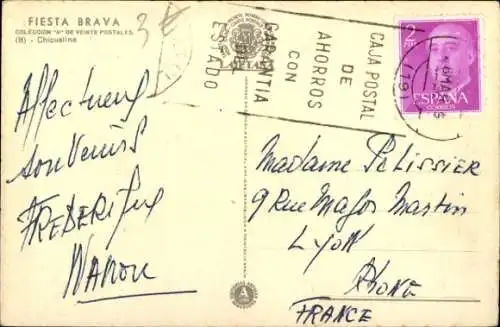 FIESTA BRAVA
COLECCION "A" DE VEINTE POSTALES.
(8) - Chicuelina
3 €
Affectueux
souvenirs
FREDERIQUE
NANOU
CAJA POSTAL
DE
AHORROS
CON
GARANTIA
DEL
ESTADO
2 PTS
ESPAÑA
CORREOS
(19)
Madame Pelissier
9 Rue Major Martin
LYON
Rhone
FRANCE